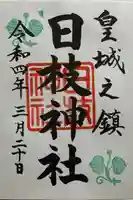 皇城之鎮
日枝神社
令和四年三月二十日